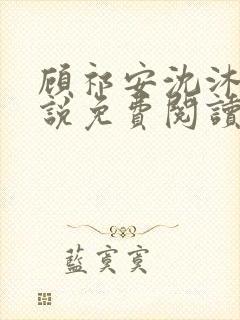 顾祁安沈沐
說免費閱讀
藍寞寞